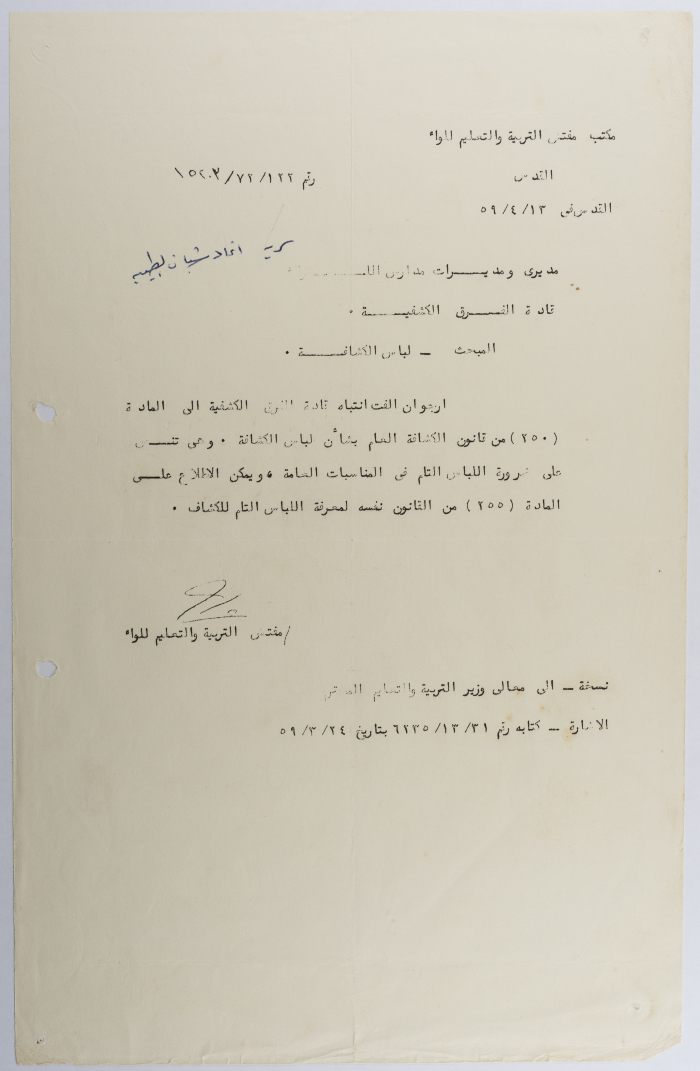 مكتب مفتش التربية والتعليم للواء
القدس
رقم ١٢٢/ ٧٢/
القدس في ١٣/ ٤/ ٥٩
سرية اتحاد شبان
مديرى ومديـــرات مدارس اللـــواء
قادة الفــــرق الكشفيــــة ٠
المبحث ــ لباس الكشافــــة ٠
ارجو ان الفت انتباه قادة الفرق الكشفية الى المادة
(٢٥٠) من قانون الكشافة العام بشأن لباس الكشافة ٠ وهى تنــص
على ضرورة اللباس التام فى المناسبات العامة ، ويمكن الاطلاع علـــى
المادة (٢٥٥) من القانون نفسه لمعرفة اللباس التام للكشاف ٠
/مفتش التربية والتعليم للواء
نسخة ــ الى معالى وزير التربية والتعليم
الاشارة ــ كتابه رقم ٣١/ ١٣/ ٦٢٣٥ بتاريخ ٢٤/ ٣/ ٥٩